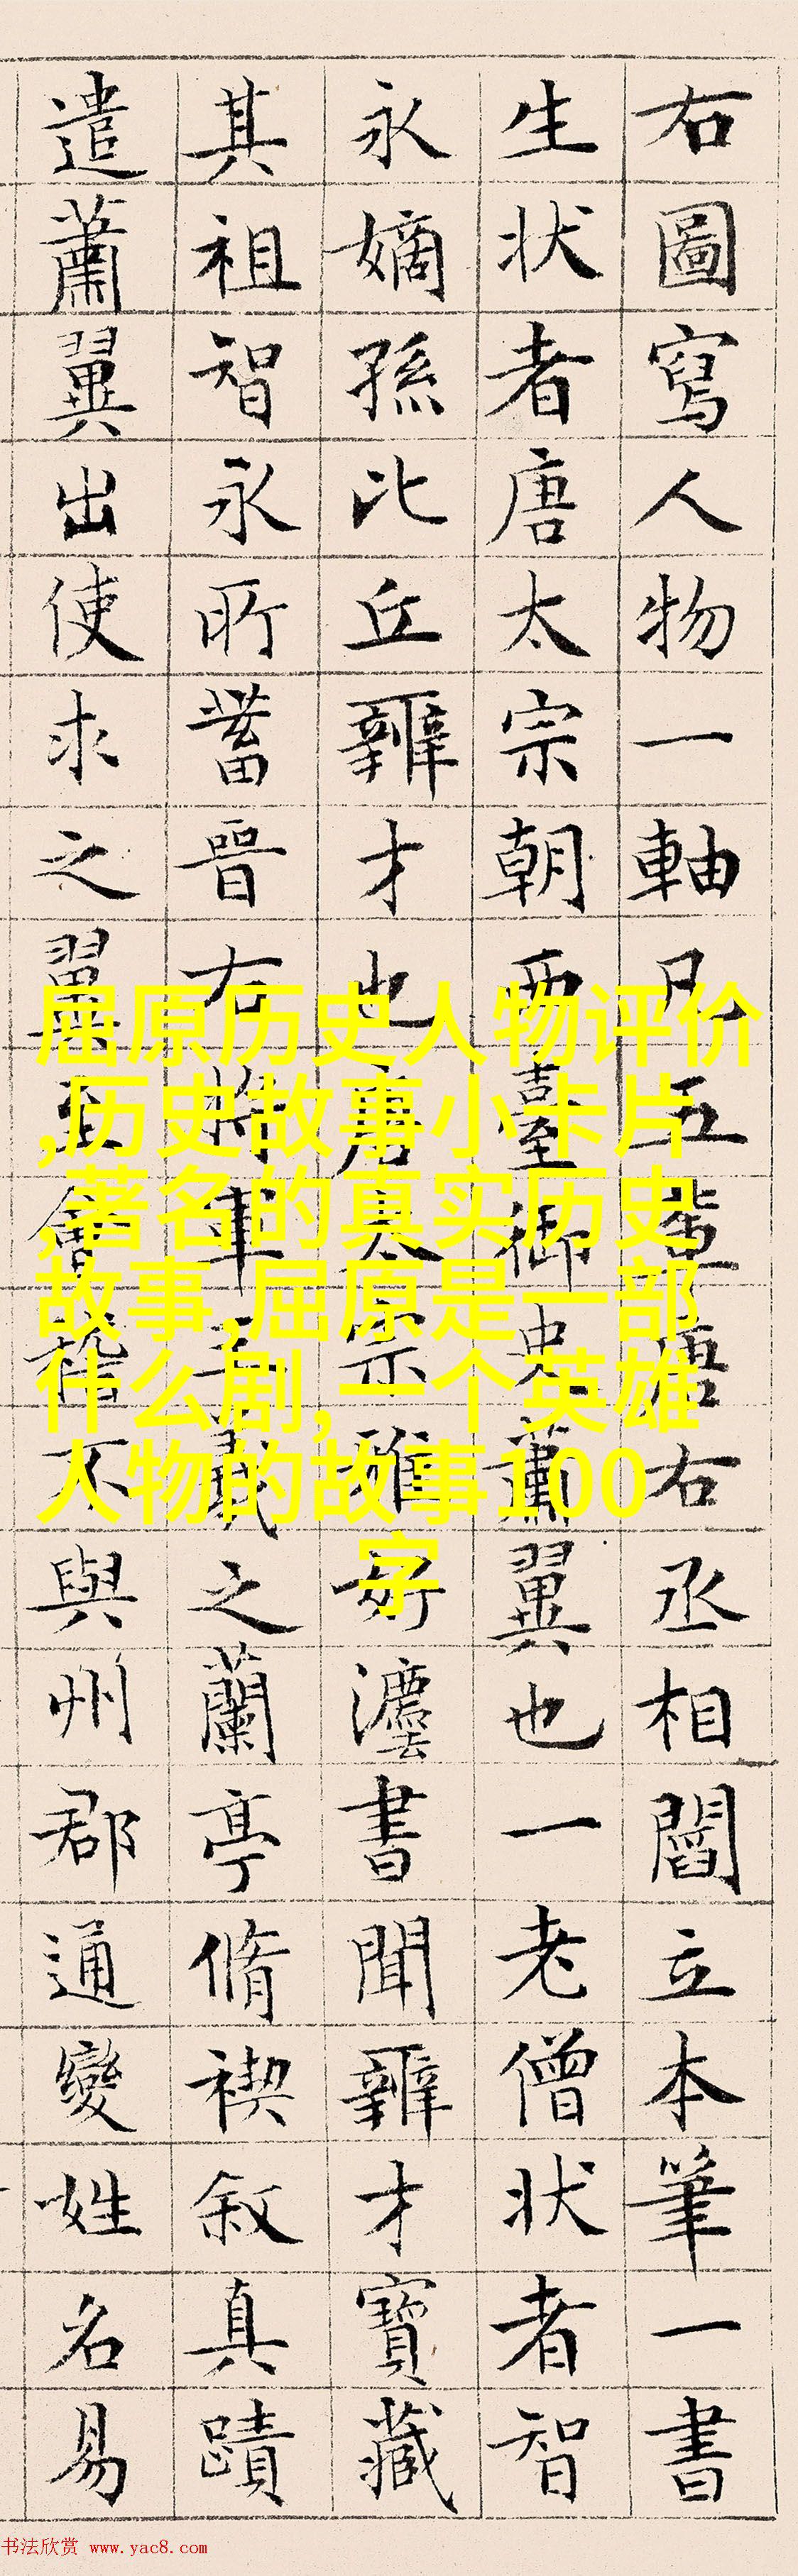 右圖寫人物一軸凡五輩唐右丞相閻立本筆一書
生状者唐太宗朝西臺御史蕭翼也一老僧状者智
永嫡孫比丘辯才也唐太宗雅好灋書聞辯才寶藏
其祖智永所蓄晉右將軍王羲之蘭亭脩禊敘真蹟
遣蕭翼出使求之翼至會稽不與州郡通變姓名易
屈原历史人物评价
,历史故事小卡片
,著名的真实历史
故事,屈原是一部
什么剧,一个英雄
人物的故事100
字
书法欣赏 www.yac8.com